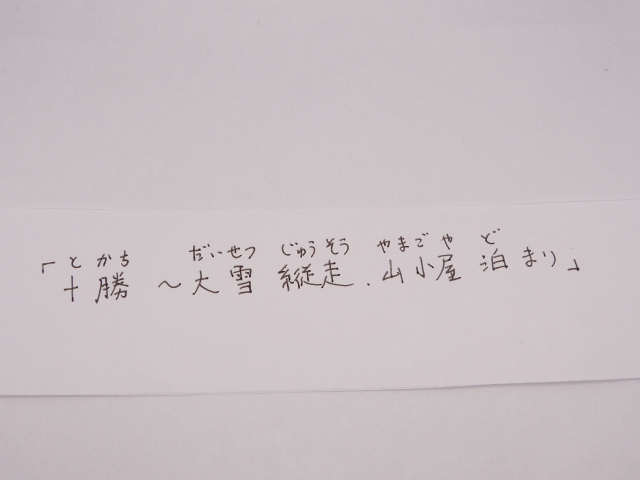 とかち だいせつ じゅうそう やまごや ど
「十勝 ～大雪 縦走.山小屋 泊まり」